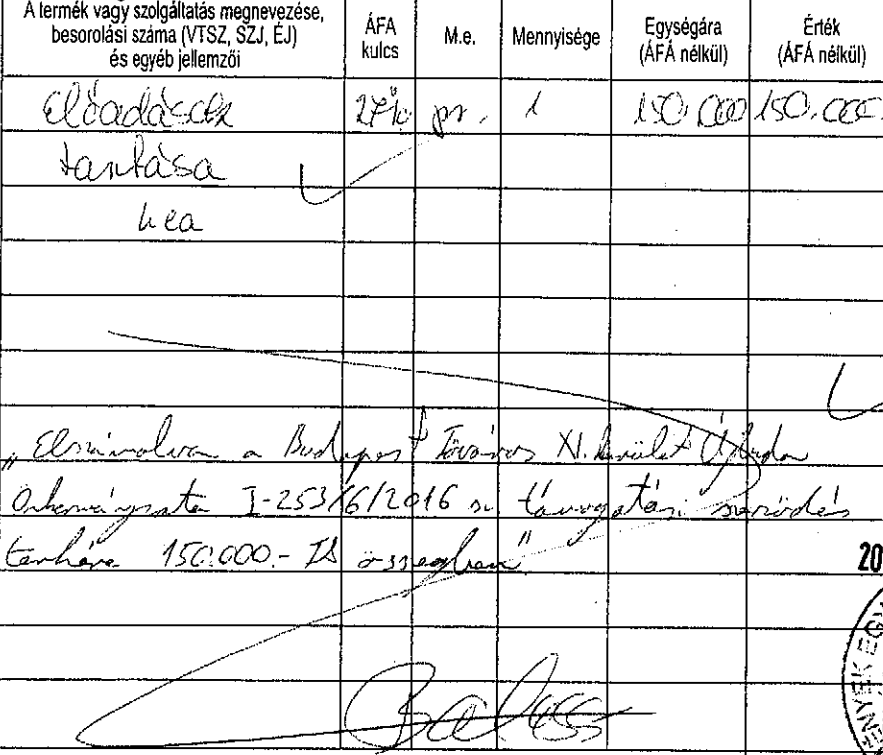 A termék vagy szolgáltatás megnevezése, besorolási száma (VTSZ, SZJ, ÉJ) és egyéb jellemzői ÁFA kulcs M.e. Mennyisége Egységára (ÁFA nélkül) Érték (ÁFA nélkül)
Előadások 27% 1 150.000 150.000
tartása
"Elszámolva a Budapest Főváros XI. kerület Újbuda
Önkormányzata I-253/6/2016 sz. támogatási szerződés
terhére 150.000.- Ft összegben"
20